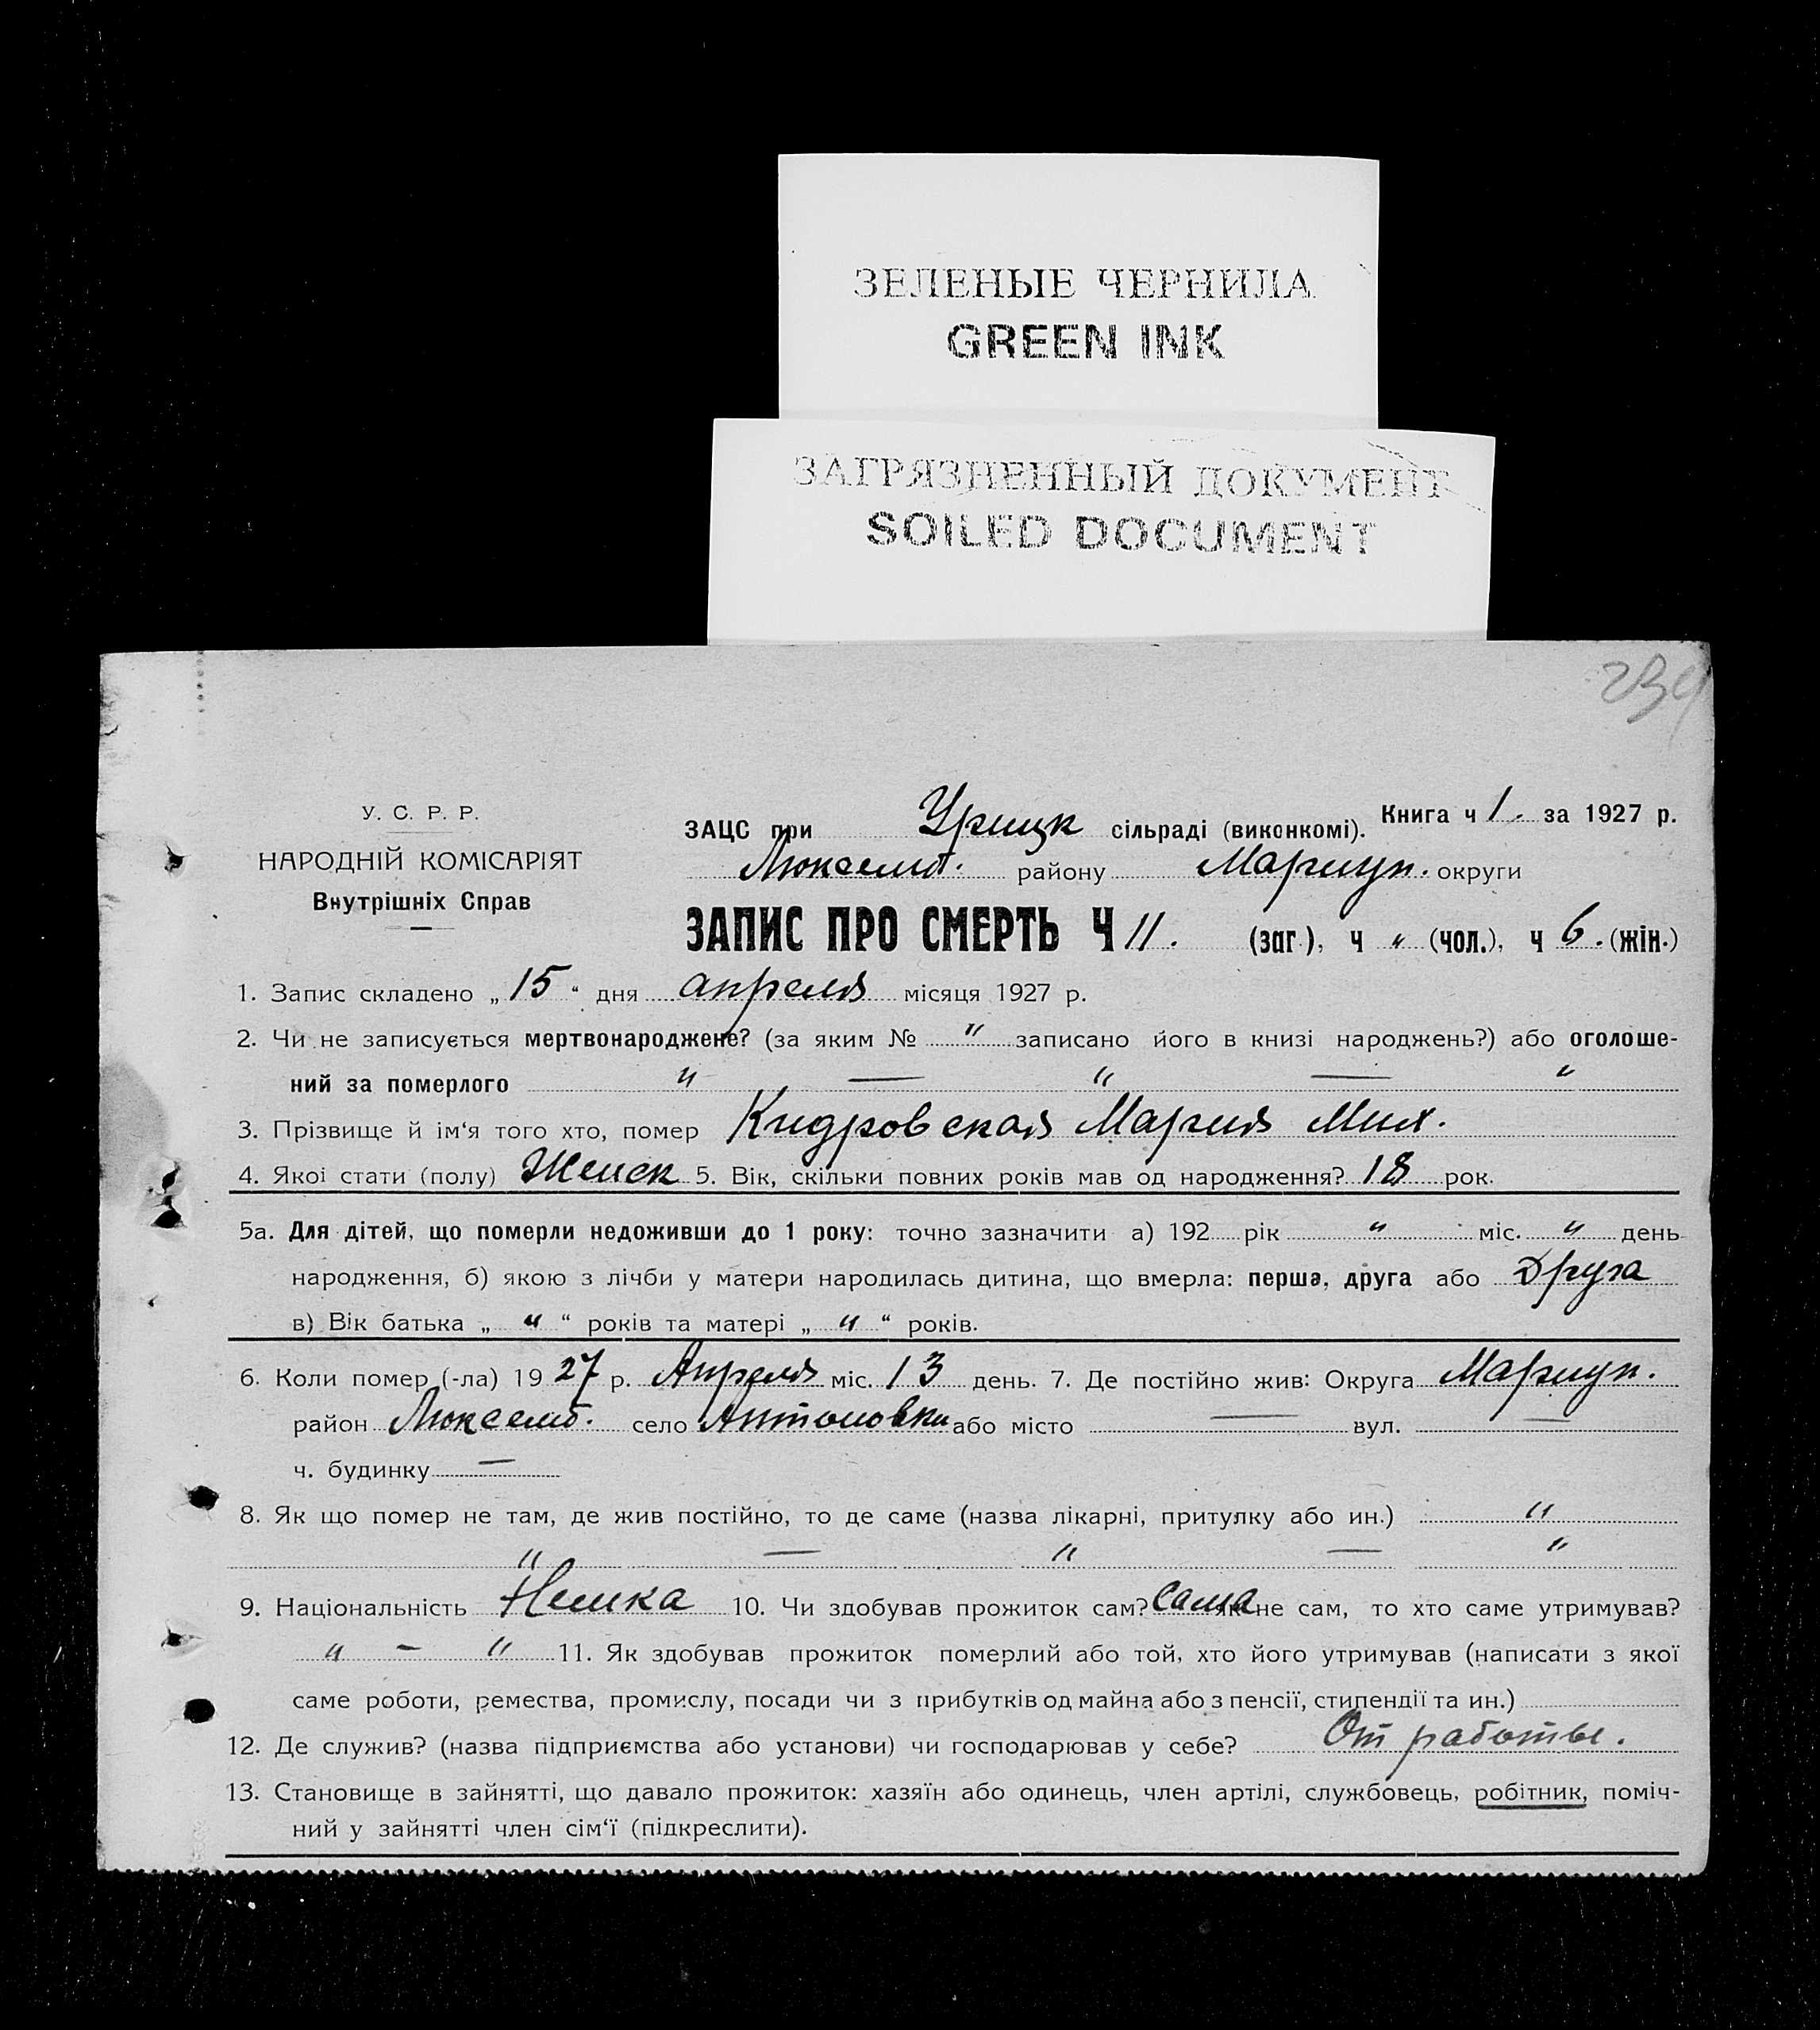 ЗЕЛЕНЫЕ ЧЕРНИЛА
GREEN INK
ЗАГРЯЗНЕННЫЙ ДОКУМЕНТ
SOILED DOCUMENT
239
У. С. Р. Р.
НАРОДНІЙ КОМІСАРІЯТ
Внутрішніх Справ
Книга ч 1. за 1927 р.
ЗАЦС при Урицк сільраді (виконкомі).
Люксемб. району Мариуп. округи
ЗАПИС ПРО СМЕРТЬ Ч 11. (заг.), ч " (чол.), ч 6. (жін.)
1. Запис складено „ 15 “ дня апреля місяця 1927 р.
2. Чи не записується мертвонароджене? (за яким № " записано його в книзі народжень?) або оголоше-
ний за померлого " — " — "
3. Прізвище й ім‘я того хто, помер Кидровская Мария Мих.
4. Якої стати (полу) Женск 5. Вік, скільки повних років мав од народження? 18 рок.
5а. Для дітей, що померли недоживши до 1 року: точно зазначити а) 192 рік " міс. " день
народження, б) якою з лічби у матери народилась дитина, що вмерла: перша, друга або Друга
в) Вік батька „ " “ років та матері „ " “ років.
6. Коли помер (-ла) 19 27 р. Апреля міс. 13 день. 7. Де постійно жив: Округа Мариуп.
район Люксемб. село Антоновки або місто — вул. —
ч. будинку —
8. Як що помер не там, де жив постійно, то де саме (назва лікарні, притулку або ин.) "
" — " — "
9. Національність Немка 10. Чи здобував прожиток сам? Сама як не сам, то хто саме утримував?
" – " 11. Як здобував прожиток померлий або той, хто його утримував (написати з якої
саме роботи, ремества, промислу, посади чи з прибутків од майна або з пенсії, стипендії та ин.)
12. Де служив? (назва підприємства або установи) чи господарював у себе? От работы.
13. Становище в зайнятті, що давало прожиток: хазяїн або одинець, член артілі, службовець, робітник, поміч-
ний у зайнятті член сім‘ї (підкреслити).